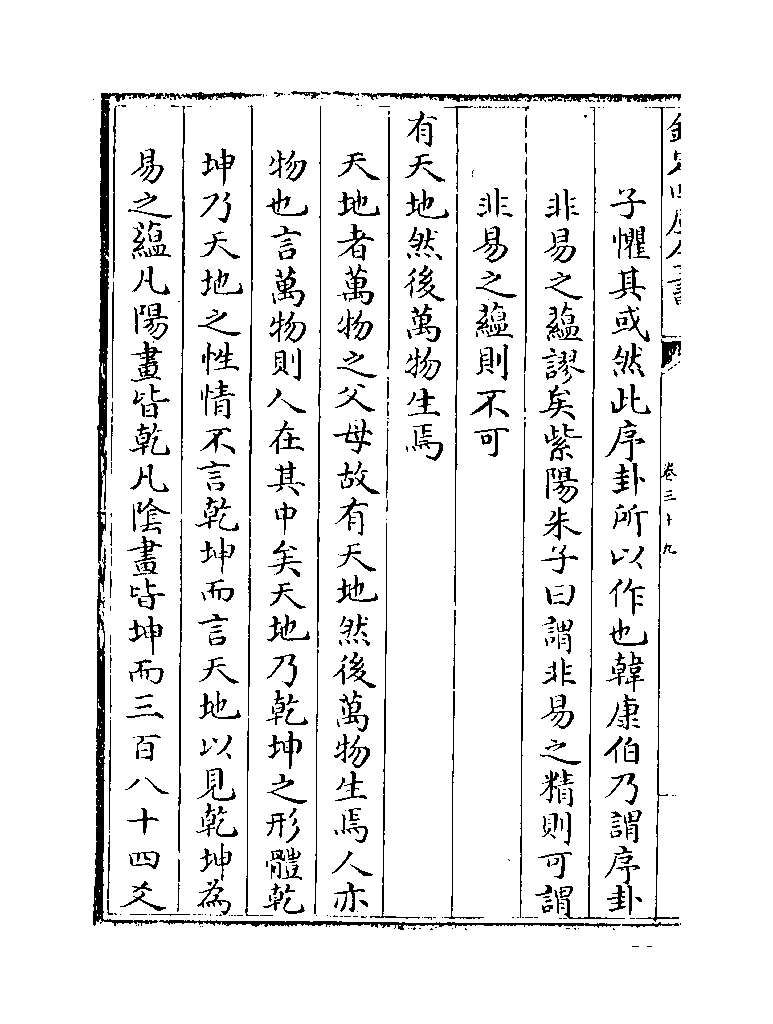 子懼其或然此序卦所以作也韓康伯乃謂序卦
非易之蘊謬矣紫陽朱子曰謂非易之精則可謂
非易之蘊則不可
有天地然後萬物生焉
天地者萬物之父母故有天地然後萬物生焉人亦
物也言萬物則人在其中矣天地乃乾坤之形體乾
坤乃天地之性情不言乾坤而言天地以見乾坤為
易之蘊凡陽畫皆乾凡陰畫皆坤而三百八十四爻
卷三十九